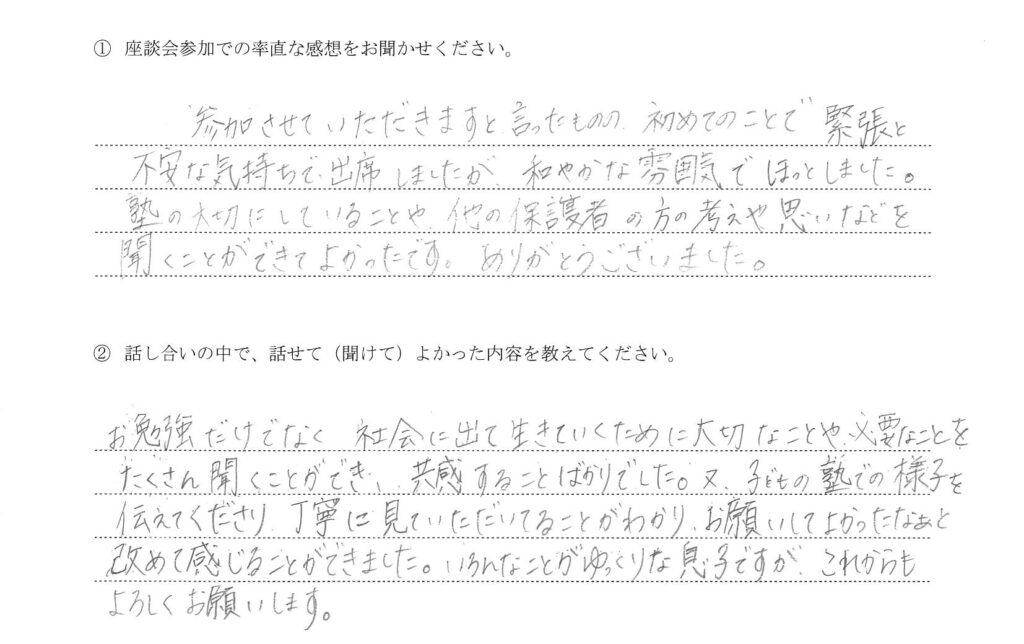 ① 座談会参加での率直な感想をお聞かせください。
参加させていただきますと言ったものの、初めてのことで緊張と
不安な気持ちで出席しましたが、和やかな雰囲気でほっとしました。
塾の大切にしていることや他の保護者の方の考えや思いなどを
聞くことができてよかったです。ありがとうございました。
② 話し合いの中で、話せて（聞けて）よかった内容を教えてください。
お勉強だけでなく 社会に出て生きていくために大切なことや、必要なことを
たくさん聞くことができ、共感することばかりでした。又、子どもの塾での様子を
伝えてくださり、丁寧に見ていただいてることがわかり、お願いしてよかったなぁと
改めて感じることができました。いろんなことがゆっくりな息子ですが、これからも
よろしくお願いします。